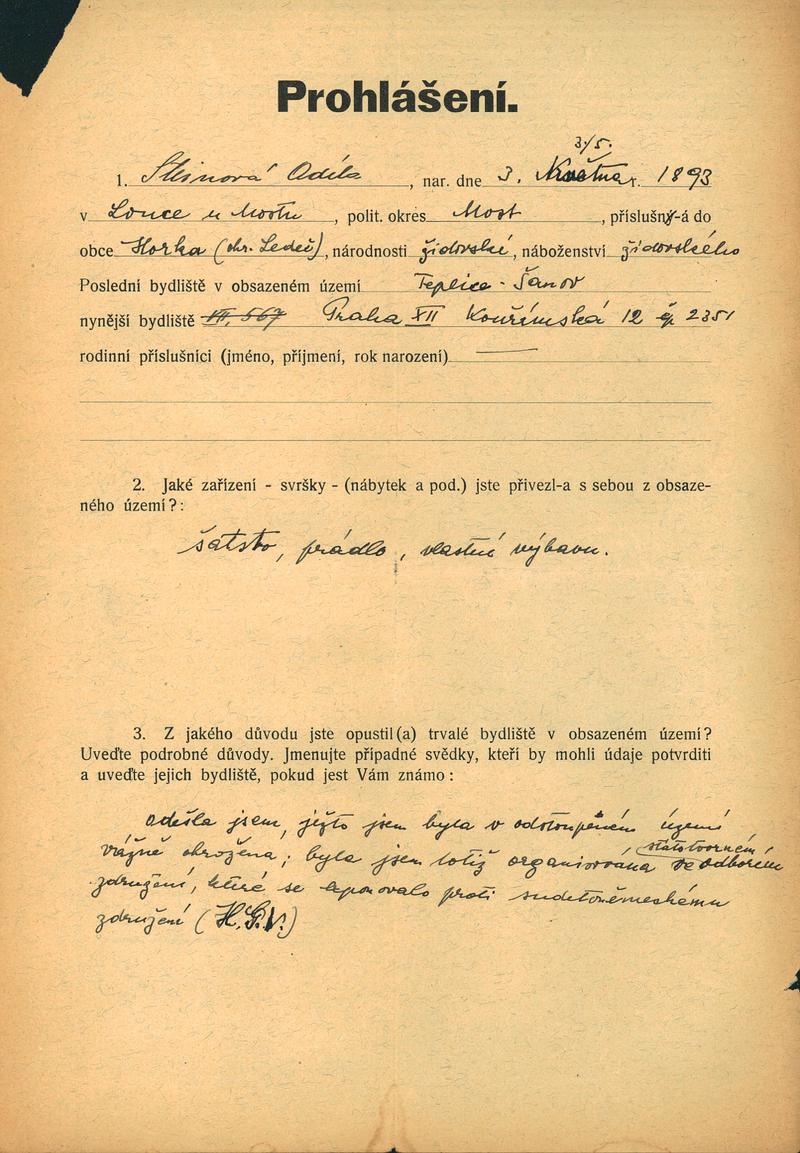 Prohlášení.
3./5.
1. Steinová Adéla, nar. dne 3. Května r. 1893
v Louce u Mostu, polit. okres Most, příslušný-á do
obce Horka (okr. Ledeč), národnosti židovské, náboženství židovského
Poslední bydliště v obsazeném území Teplice-Šanov
nynější bydliště VII. 567 Praha XII Kouřimská 12 čp 2351
rodinní příslušníci (jméno, příjmení, rok narození)
2. Jaké zařízení - svršky - (nábytek a pod.) jste přivezl-a s sebou z obsaze-
ného území?:
šatsto, prádlo, vlastní výbavu.
3. Z jakého důvodu jste opustil(a) trvalé bydliště v obsazeném území?
Uveďte podrobné důvody. Jmenujte případné svědky, kteří by mohli údaje potvrditi
a uveďte jejich bydliště, pokud jest Vám známo:
Odešla jsem, ježto jsem byla v odstoupeném území
státotvorném
vážně ohrožena; byla jsem totiž organisována ve odborém
združení, které se exponovalo proti sudetoněmeckému
združení (H.G.V.)